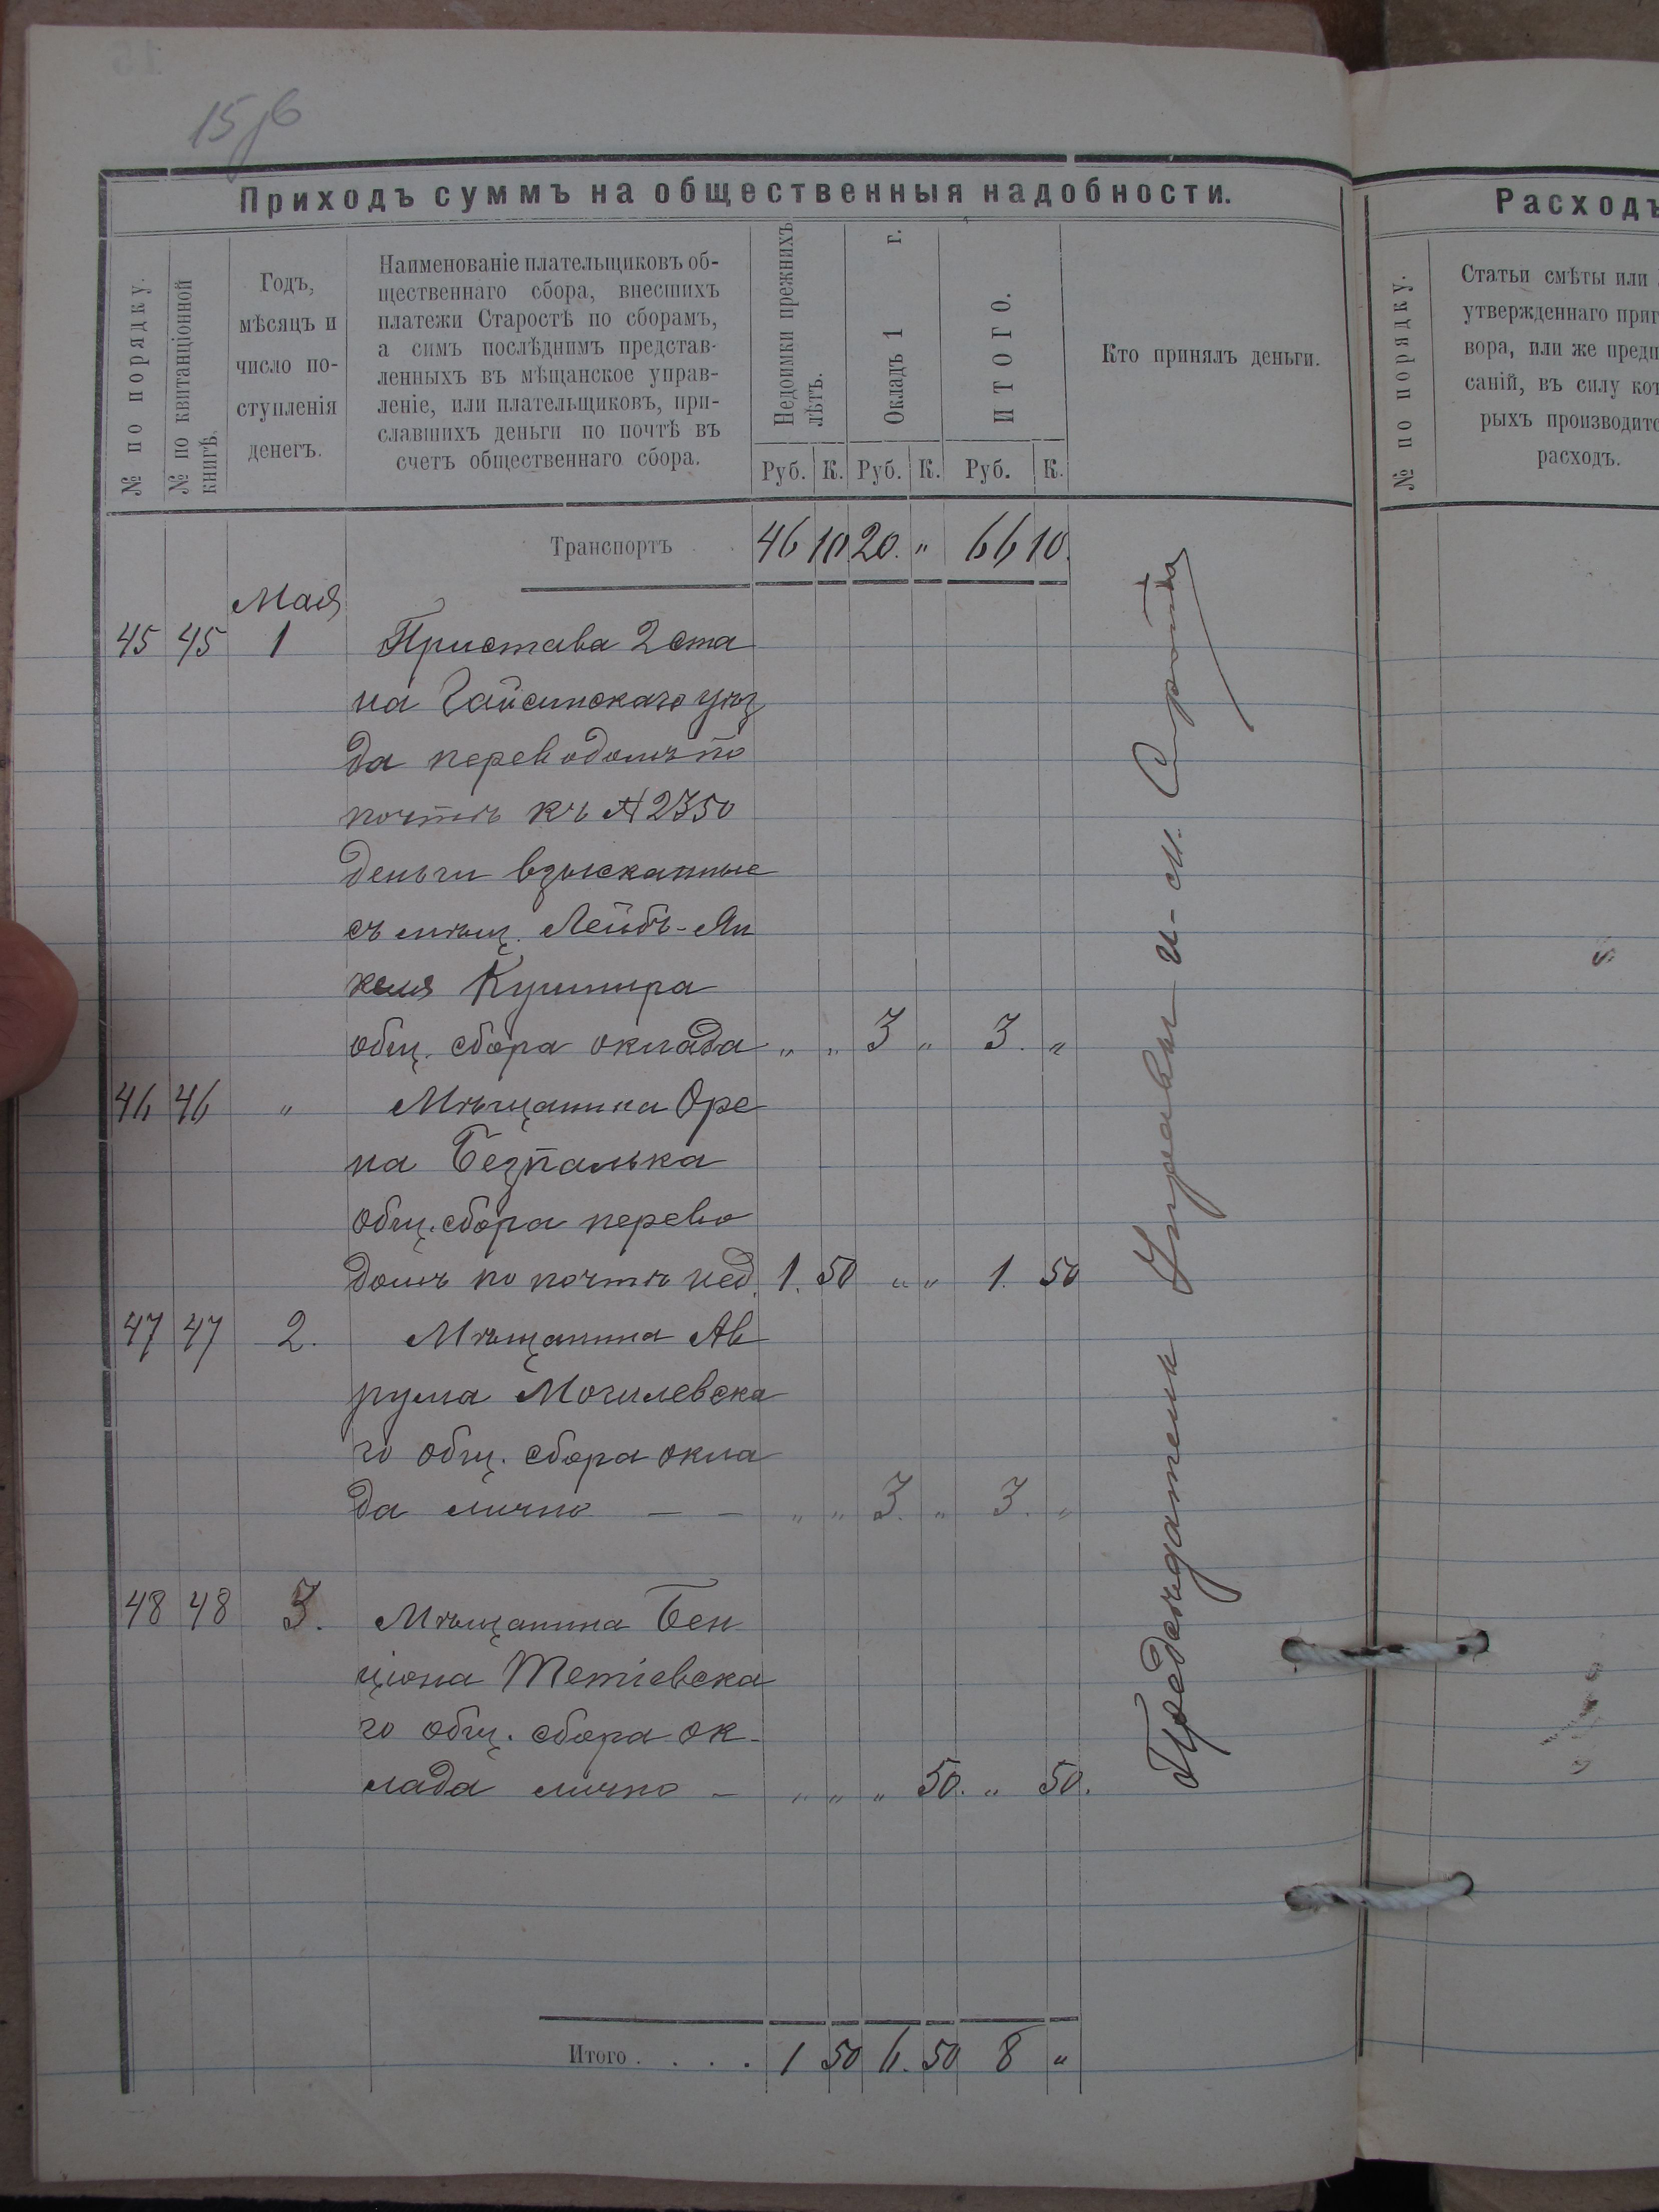 15 об
Приходъ суммъ на общественныя надобности.
№ по порядку.
№ по квитанціонной
книгѣ.
Годъ,
мѣсяцъ и
число по-
ступленія
денегъ.
Наименованіе плательщиковъ об-
щественнаго сбора, внесшихъ
платежи Старостѣ по сборамъ,
а симъ послѣднимъ представ-
ленныхъ въ мѣщанское управ-
леніе, или плательщиковъ, при-
славшихъ деньги по почтѣ въ
счетъ общественнаго сбора.
Недоимки прежнихъ
лѣтъ.
Окладъ 1 г.
ИТОГО.
Руб. К. Руб. К. Руб. К.
Кто принялъ деньги.
Транспортъ . . 46 10 20. " 66 10.
Мая
45 45 1 Пристава 2 ста
на Гайсинскаго уѣз
да переводомъ по
почтѣ къ № 2350
деньги взысканные
съ мѣщ. Лейбъ-Ян
келя Кушнира
общ. сбора оклада " " 3 " 3. "
46 46 " Мѣщанина Оре
на Безпалька
общ. сбора перево
домъ по почтѣ нед. 1. 50 " " 1. 50
47 47 2. Мѣщанина Ав
рума Могилевска
го общ. сбора окла
да лично — — " " 3. " 3. "
48 48 3. Мѣщанина Бен
ціона Тетіевска
го общ. сбора ок-
лада лично - " " " 50. " 50.
Итого . . . . 1 50 6. 50 8 "
Управы
Расходъ
№ по порядку.
Статьи смѣты или
утвержденнаго приг
вора, или же предп
саній, въ силу кот
рыхъ производитс
расходъ.